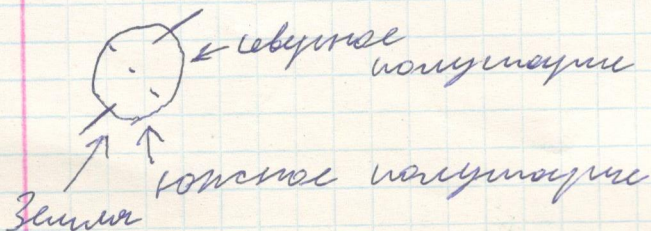 северное
полушарие
южное полушарие
Земля